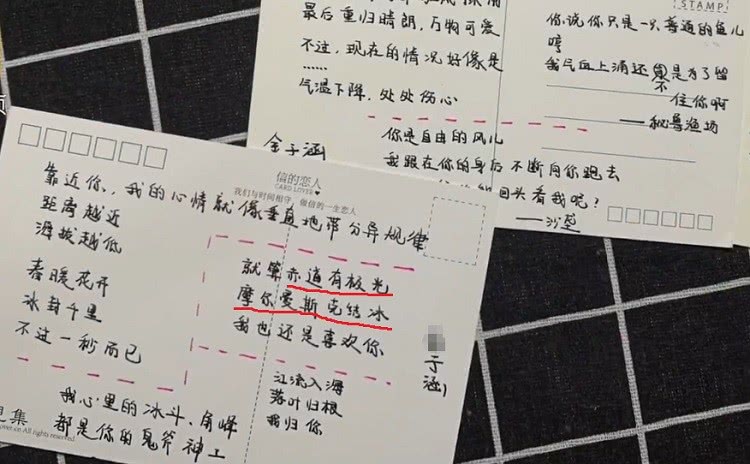 最后重归晴朗，万物可爱
不过，现在的情况好像是
……
气温下降，处处伤心
STAMP
你说你只是一只普通的鱼儿
哼
我气血上涌还不是为了留
住你啊
——秘鲁渔场
你是自由的风儿
我跟在你的身后不断向你跑去
回头看我呢？
——沙垄
金子涵
信的恋人
CARD LOVER
我们与时间相守，做信的一生恋人
靠近你，我的心情就像垂直地带分异规律
距离越近
海拔越低
春暖花开
冰封千里
不过一秒而已
就算赤道有极光
摩尔曼斯克结冰
我也还是喜欢你
子涵
江流入海
落叶归根
我归你
我心里的冰斗、角峰
都是你的鬼斧神工
集
All rights reserved.